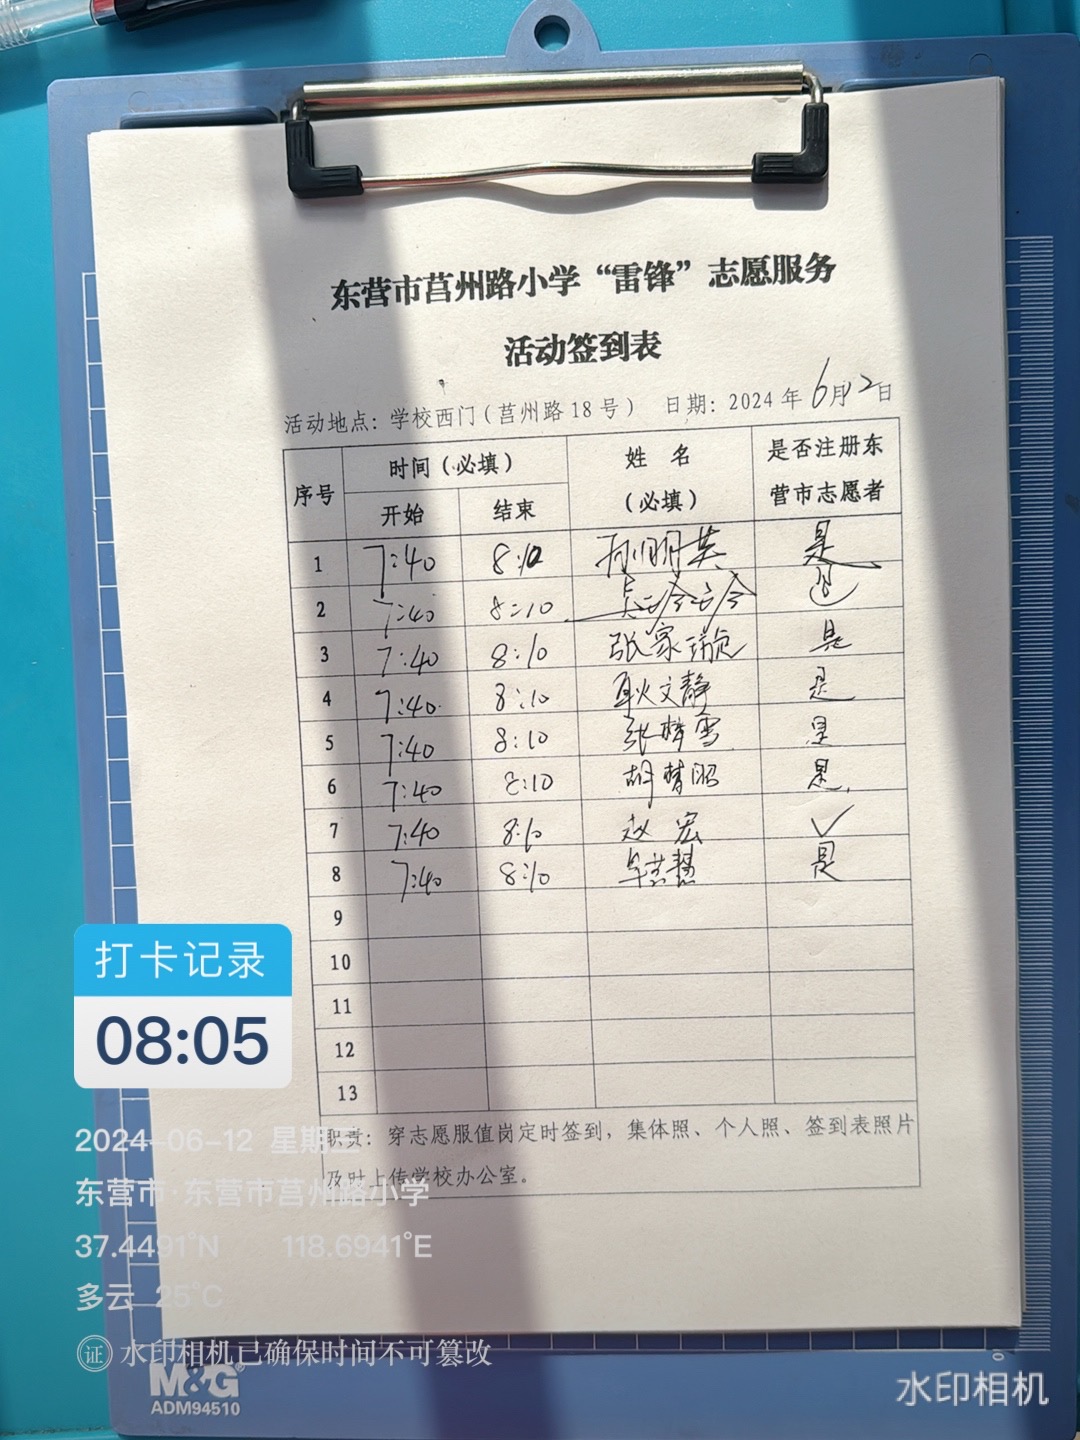 东营市莒州路小学“雷锋”志愿服务
活动签到表
活动地点：学校西门（莒州路18号） 日期：2024年6月12日
序号 时间（必填） 姓 名（必填） 是否注册东营市志愿者
开始 结束
1 7:40 8:10 孙丽英 是
2 7:40 8:10
3 7:40 8:10 张家 是
4 7:40 8:10 耿文静 是
5 7:40 8:10 张梦雪 是
6 7:40 8:10 胡梦昭 是
7 7:40 8:10 赵宏 ✓
8 7:40 8:10 慧 是
9
10
11
12
13
职责：穿志愿服值岗定时签到，集体照、个人照、签到表照片
及时上传学校办公室。
打卡记录
08:05
2024-06-12 星期三
东营市·东营市莒州路小学
37.4491°N 118.6941°E
多云 25°C
证 水印相机已确保时间不可篡改
M&G
ADM94510
水印相机